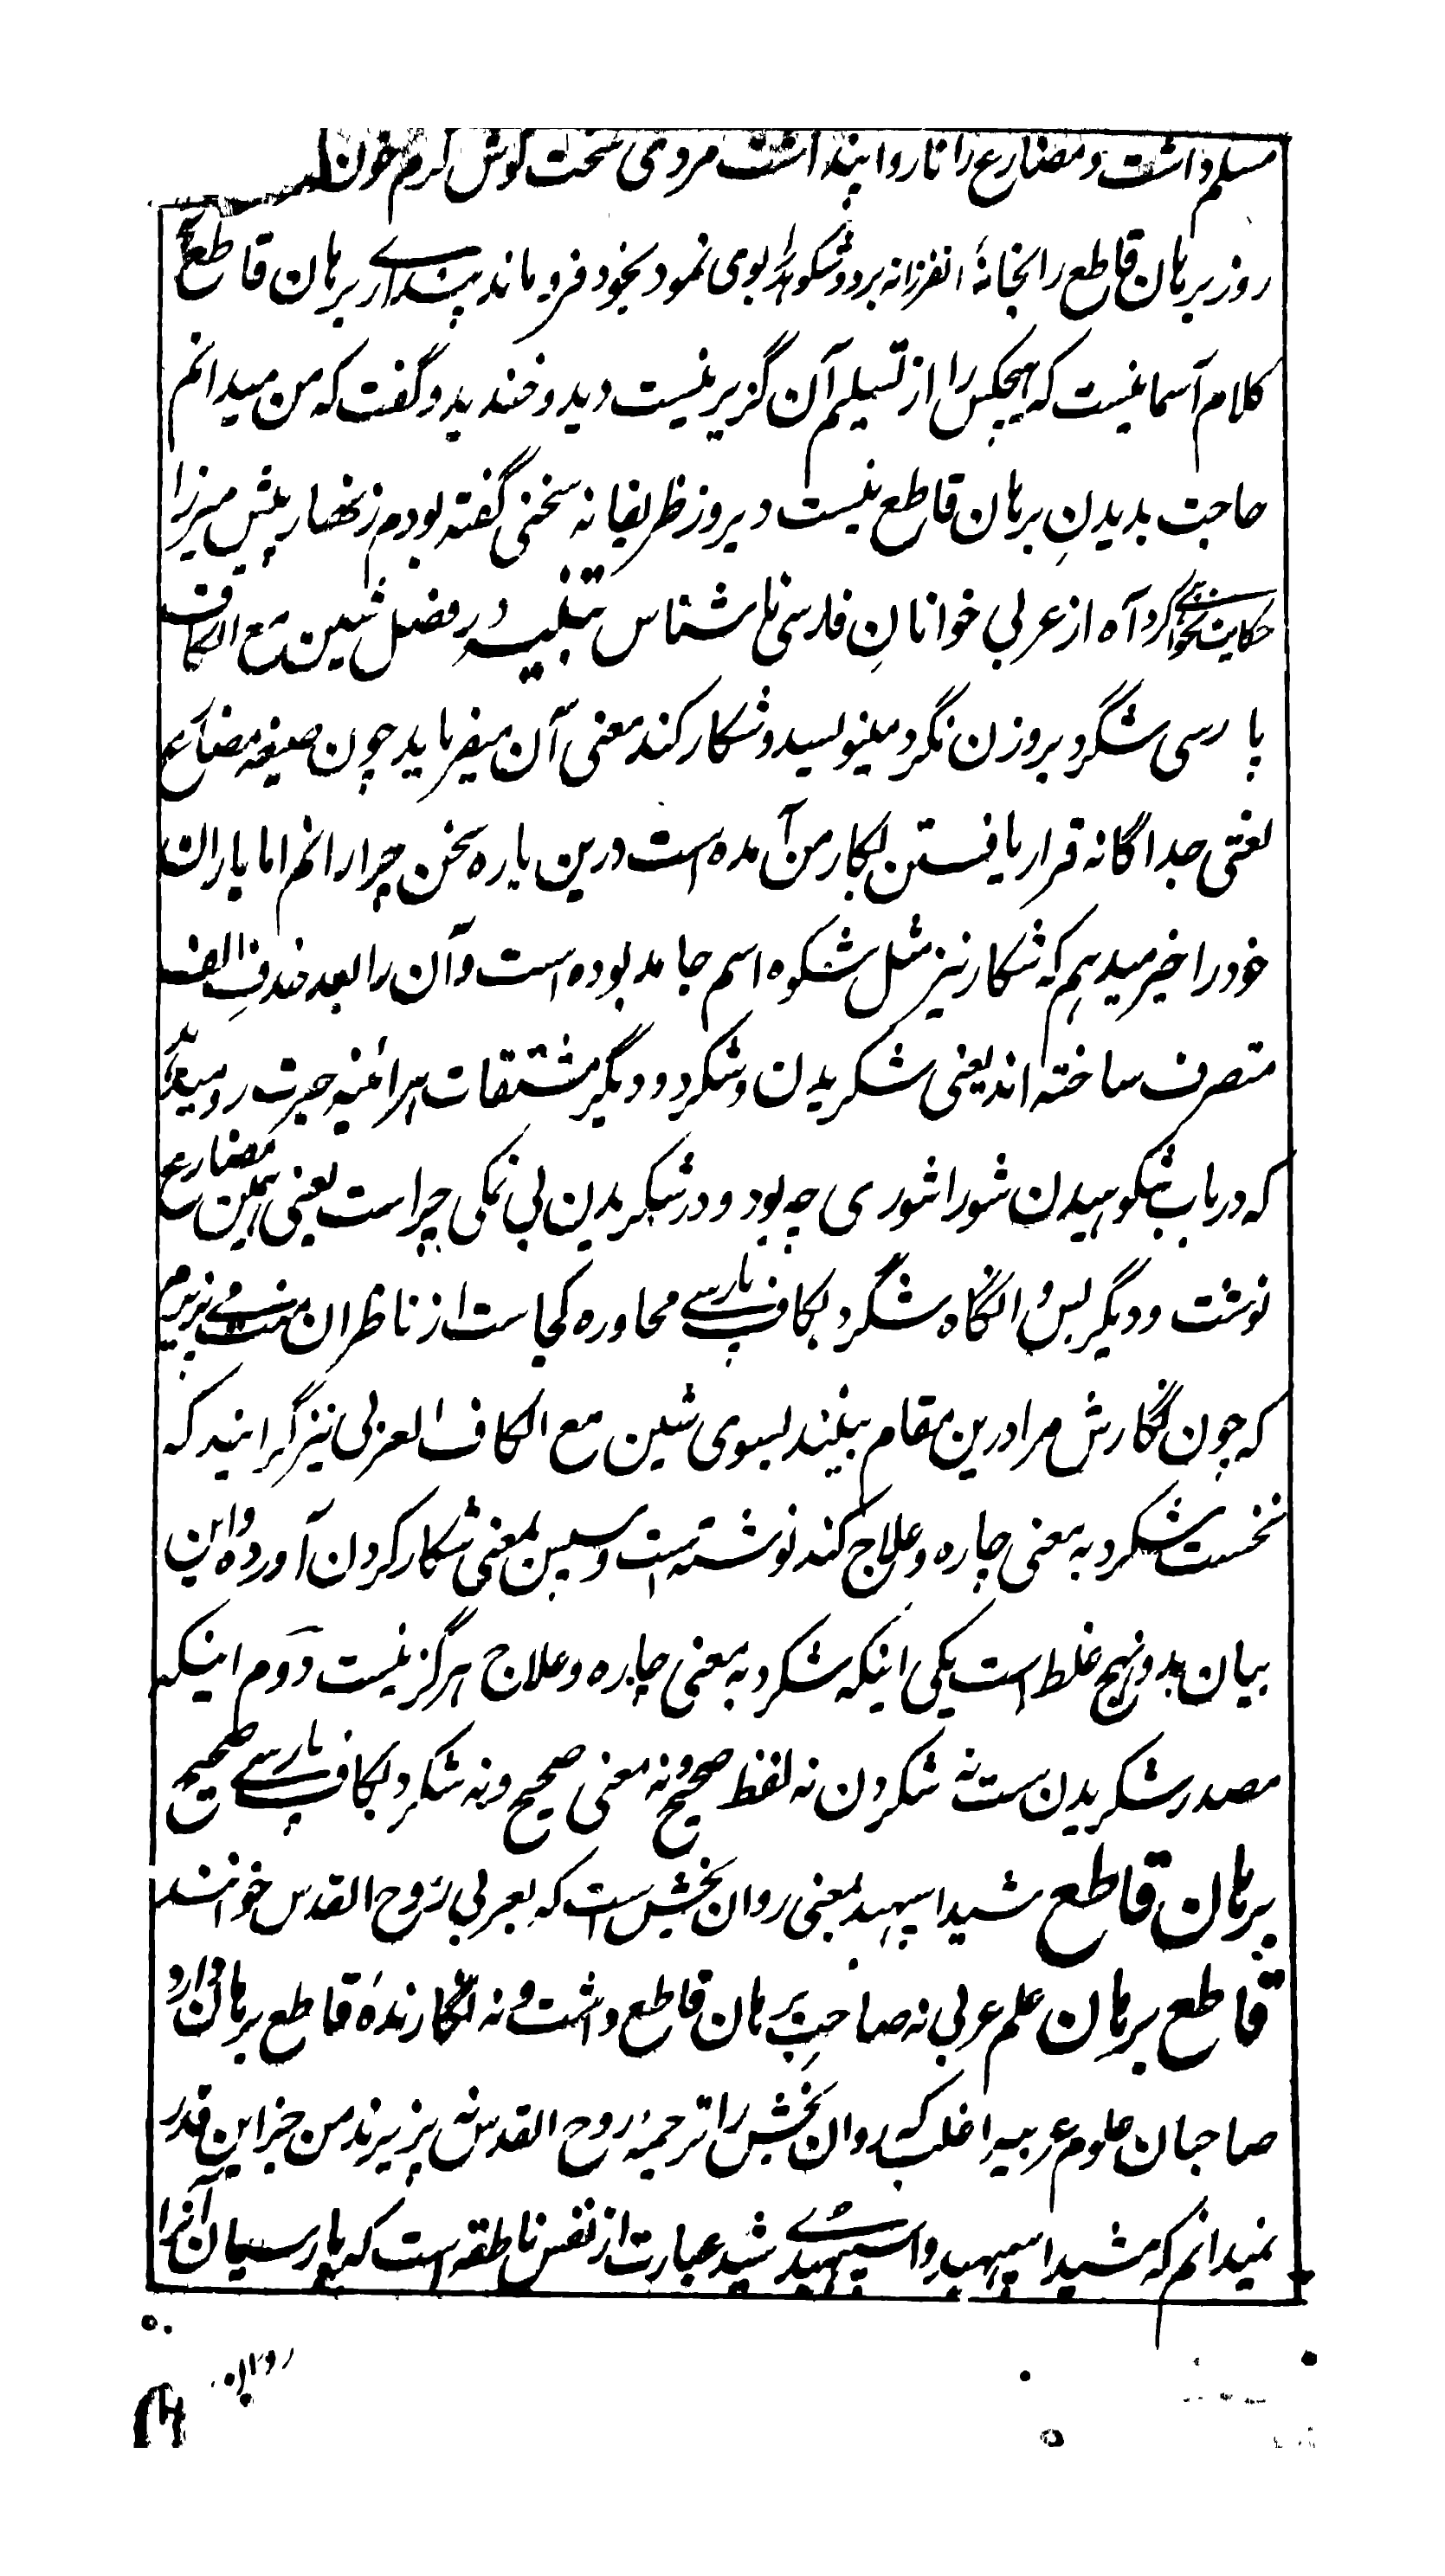 مسلم داشت و مضارع را ناروا پنداشت مردمی سخت کوش گرم خون
روز برهان قاطع را بخانۀ انفرزانه برد و شکوهد را بوی نمود بخود فرو ماند پنداری برهان قاطع
کلام آسمانیست که هیچکس را از تسلیم آن گزیر نیست دید و خندید و گفت که من میدانم
حاجت بدیدنِ برهان قاطع نیست دیروز ظریفانه سخنی گفته بودم زنهار پیش میرزا
حکایت نخواهی کرد آه از عربی خوانانِ فارسی ناشناس تنبیه در فصل شین مع الکاف
پارسی شگرد بروزن نگرد مینویسد و شکار کند معنی آن میفرماید چون صیغه مضارع
لغتی جداگانه قرار یافتن بکار من آمده است درین باره سخن چرا رانم اما یاران
خود را خبر میدهم که شکار نیز مثل شکوه اسم جامد بوده است و آن را بعد حذفِ الف
متصرف ساخته اند یعنی شکریدن و شکرد و دیگر مشتقات هر آئینه حیرت رو میدهد
که در باب شکوهیدن شوراشوری چه بود و در شکریدن بی نمکی چراست یعنی همین مضارع
نوشت و دیگر بس و انگاه شگرد بکاف پارسی محاوره کجاست از ناظران منت می پذیرم
که چون نگارش مرا درین مقام بینند بسوی شین مع الکاف العربی نیز گرایند که
نخست شکرد به معنی چاره و علاج کند نوشته است و سپس بمعنی شکار کردن آورده و این
بیان بدو نهج غلط است یکی اینکه شکرد به معنی چاره و علاج هرگز نیست دوم اینکه
مصدر شکریدن ست نه شکردن نه لفظ صحیح و نه معنی صحیح و نه شگرد بکاف پارسی صحیح
برهان قاطع شید اسپهبد بمعنی روان بخش است که بعربی روح القدس خوانند
قاطع برهان علم عربی نه صاحبِ برهان قاطع داشت و نه نگارندۀ قاطع برهان دارد
صاحبان علوم عربیه اغلب که روان بخش را ترجمۀ روح القدس نه پزیرند من جز این قدر
نمیدانم که شید اسپهبد و اسپهبدی شید عبارت از نفس ناطقه است که پارسیان آنرا
روان